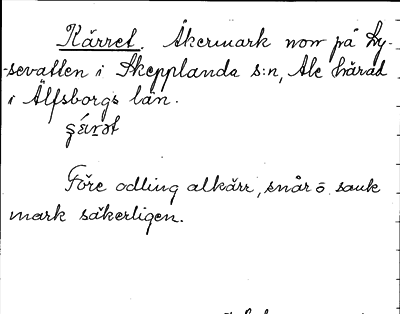 Kärret. Åkermark norr på Ly-
-sevatten i Skepplanda s:n, Ale härad
i Älfsborgs län.
Före odling alkärr, snår o. sank
mark säkerligen.